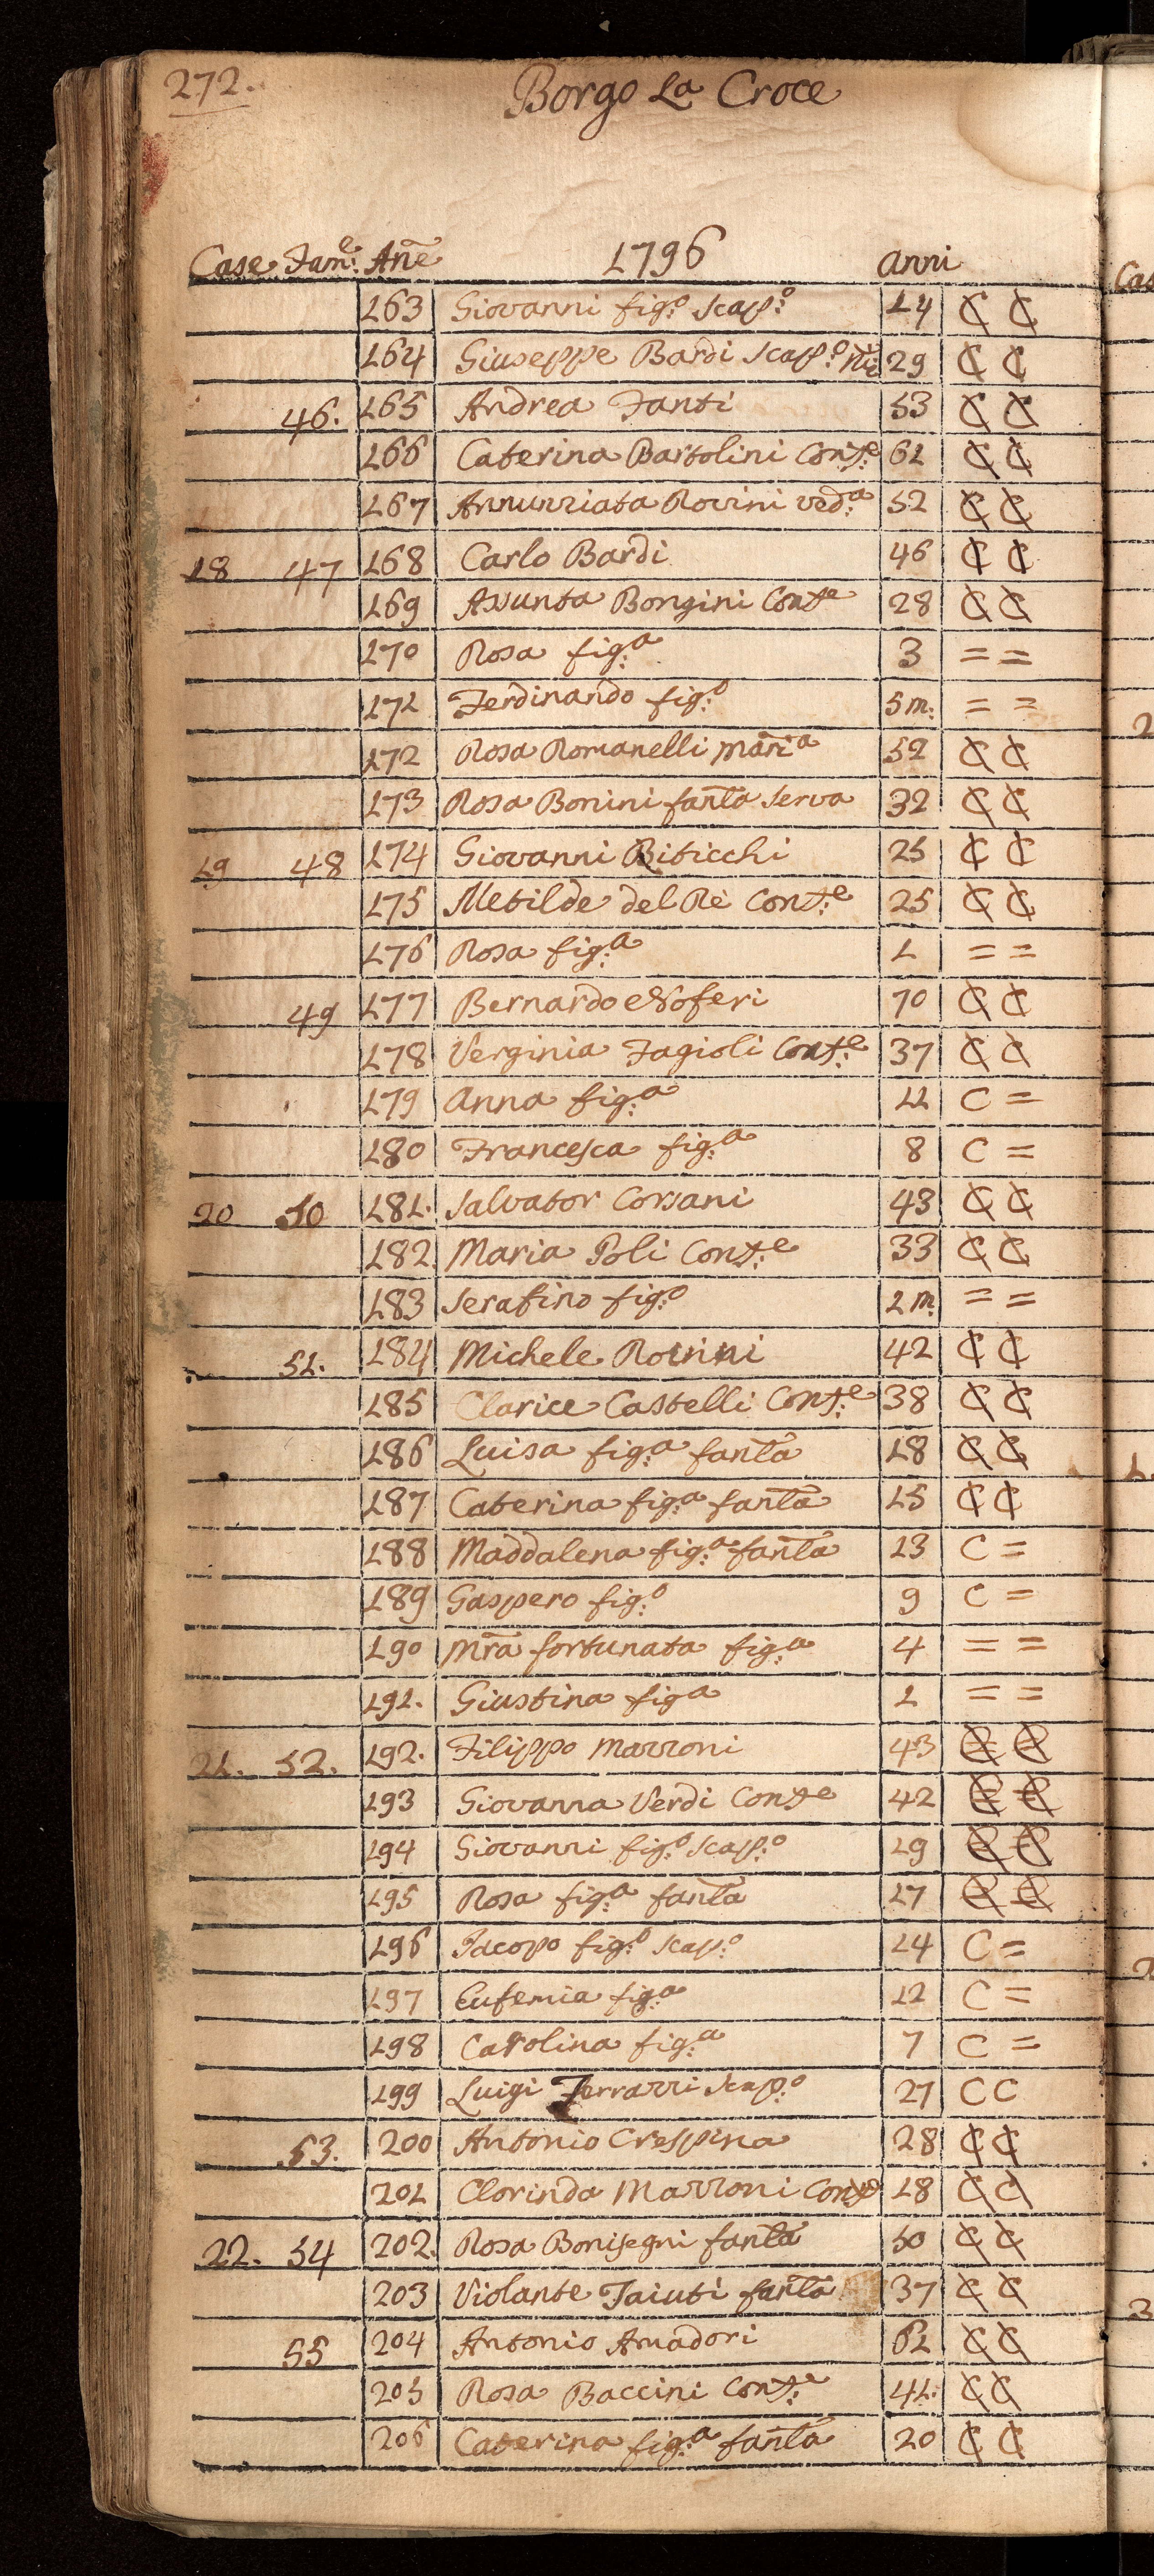 272.
Borgo La Croce
Case Fam:e Añe 1796 anni
163 Giovanni fig:o scap:o 14 C C
164 Giuseppe Bardi scap:o 29 C C
46. 165 Andrea Fanti 53 C C
166 Caterina Bartolini Cons:te 61 C C
167 Annunziata Rovini ved:a 52 C C
18 47 168 Carlo Bardi 46 C C
169 Assunta Bongini Conste 28 C C
170 Rosa fig:a 3 = =
171 Ferdinando fig:o 5 m: = =
172 Rosa Romanelli mãria 52 C C
173 Rosa Bonini fanla serva 32 C C
19 48 174 Giovanni Biticchi 25 C C
175 Metilde del Rè Cons:te 25 C C
176 Rosa fig:a 1 = =
49 177 Bernardo Noferi 70 C C
178 Verginia Fagioli Cons:te 37 C C
179 Anna fig:a 11 C =
180 Francesca fig:a 8 C =
20 50 181. Salvator Corsani 43 C C
182 Maria Poli Cons:te 33 C C
183 Serafino fig:o 2 m: = =
51. 184 Michele 42 C C
185 Clarice Castelli Cons:te 38 C C
186 Luisa fig:a fanla 18 C C
187 Caterina fig:a fanla 15 C C
188 Maddalena fig:a fanla 13 C =
189 Gaspero fig:o 9 C =
190 Mr̃a fortunata fig:a 4 = =
191. Giustina figa 1 = =
21. 52. 192. Filippo Marzoni 43 C C
193 Giovanna Verdi Conste 42 C C
194 Giovanni fig:o scap:o 19 C C
195 Rosa fig:a fanla 17 C C
196 Jacopo fig:o scap:o 14 C =
197 Eufemia fig:a 12 C =
198 Carolina fig:a 7 C =
199 Luigi Ferrazzi scap:o 27 C C
53. 200 Antonio Crespina 28 C C
201 Clorinda Marzoni Conste 18 C C
22. 54 202. Rosa Bonisegni fanla 50 C C
203 Violante Taiuti fanla 37 C C
55 204 Antonio Amadori C C
205 Rosa Baccini Cons:te 41. C C
206 Caterina fig:a fanla 20 C C